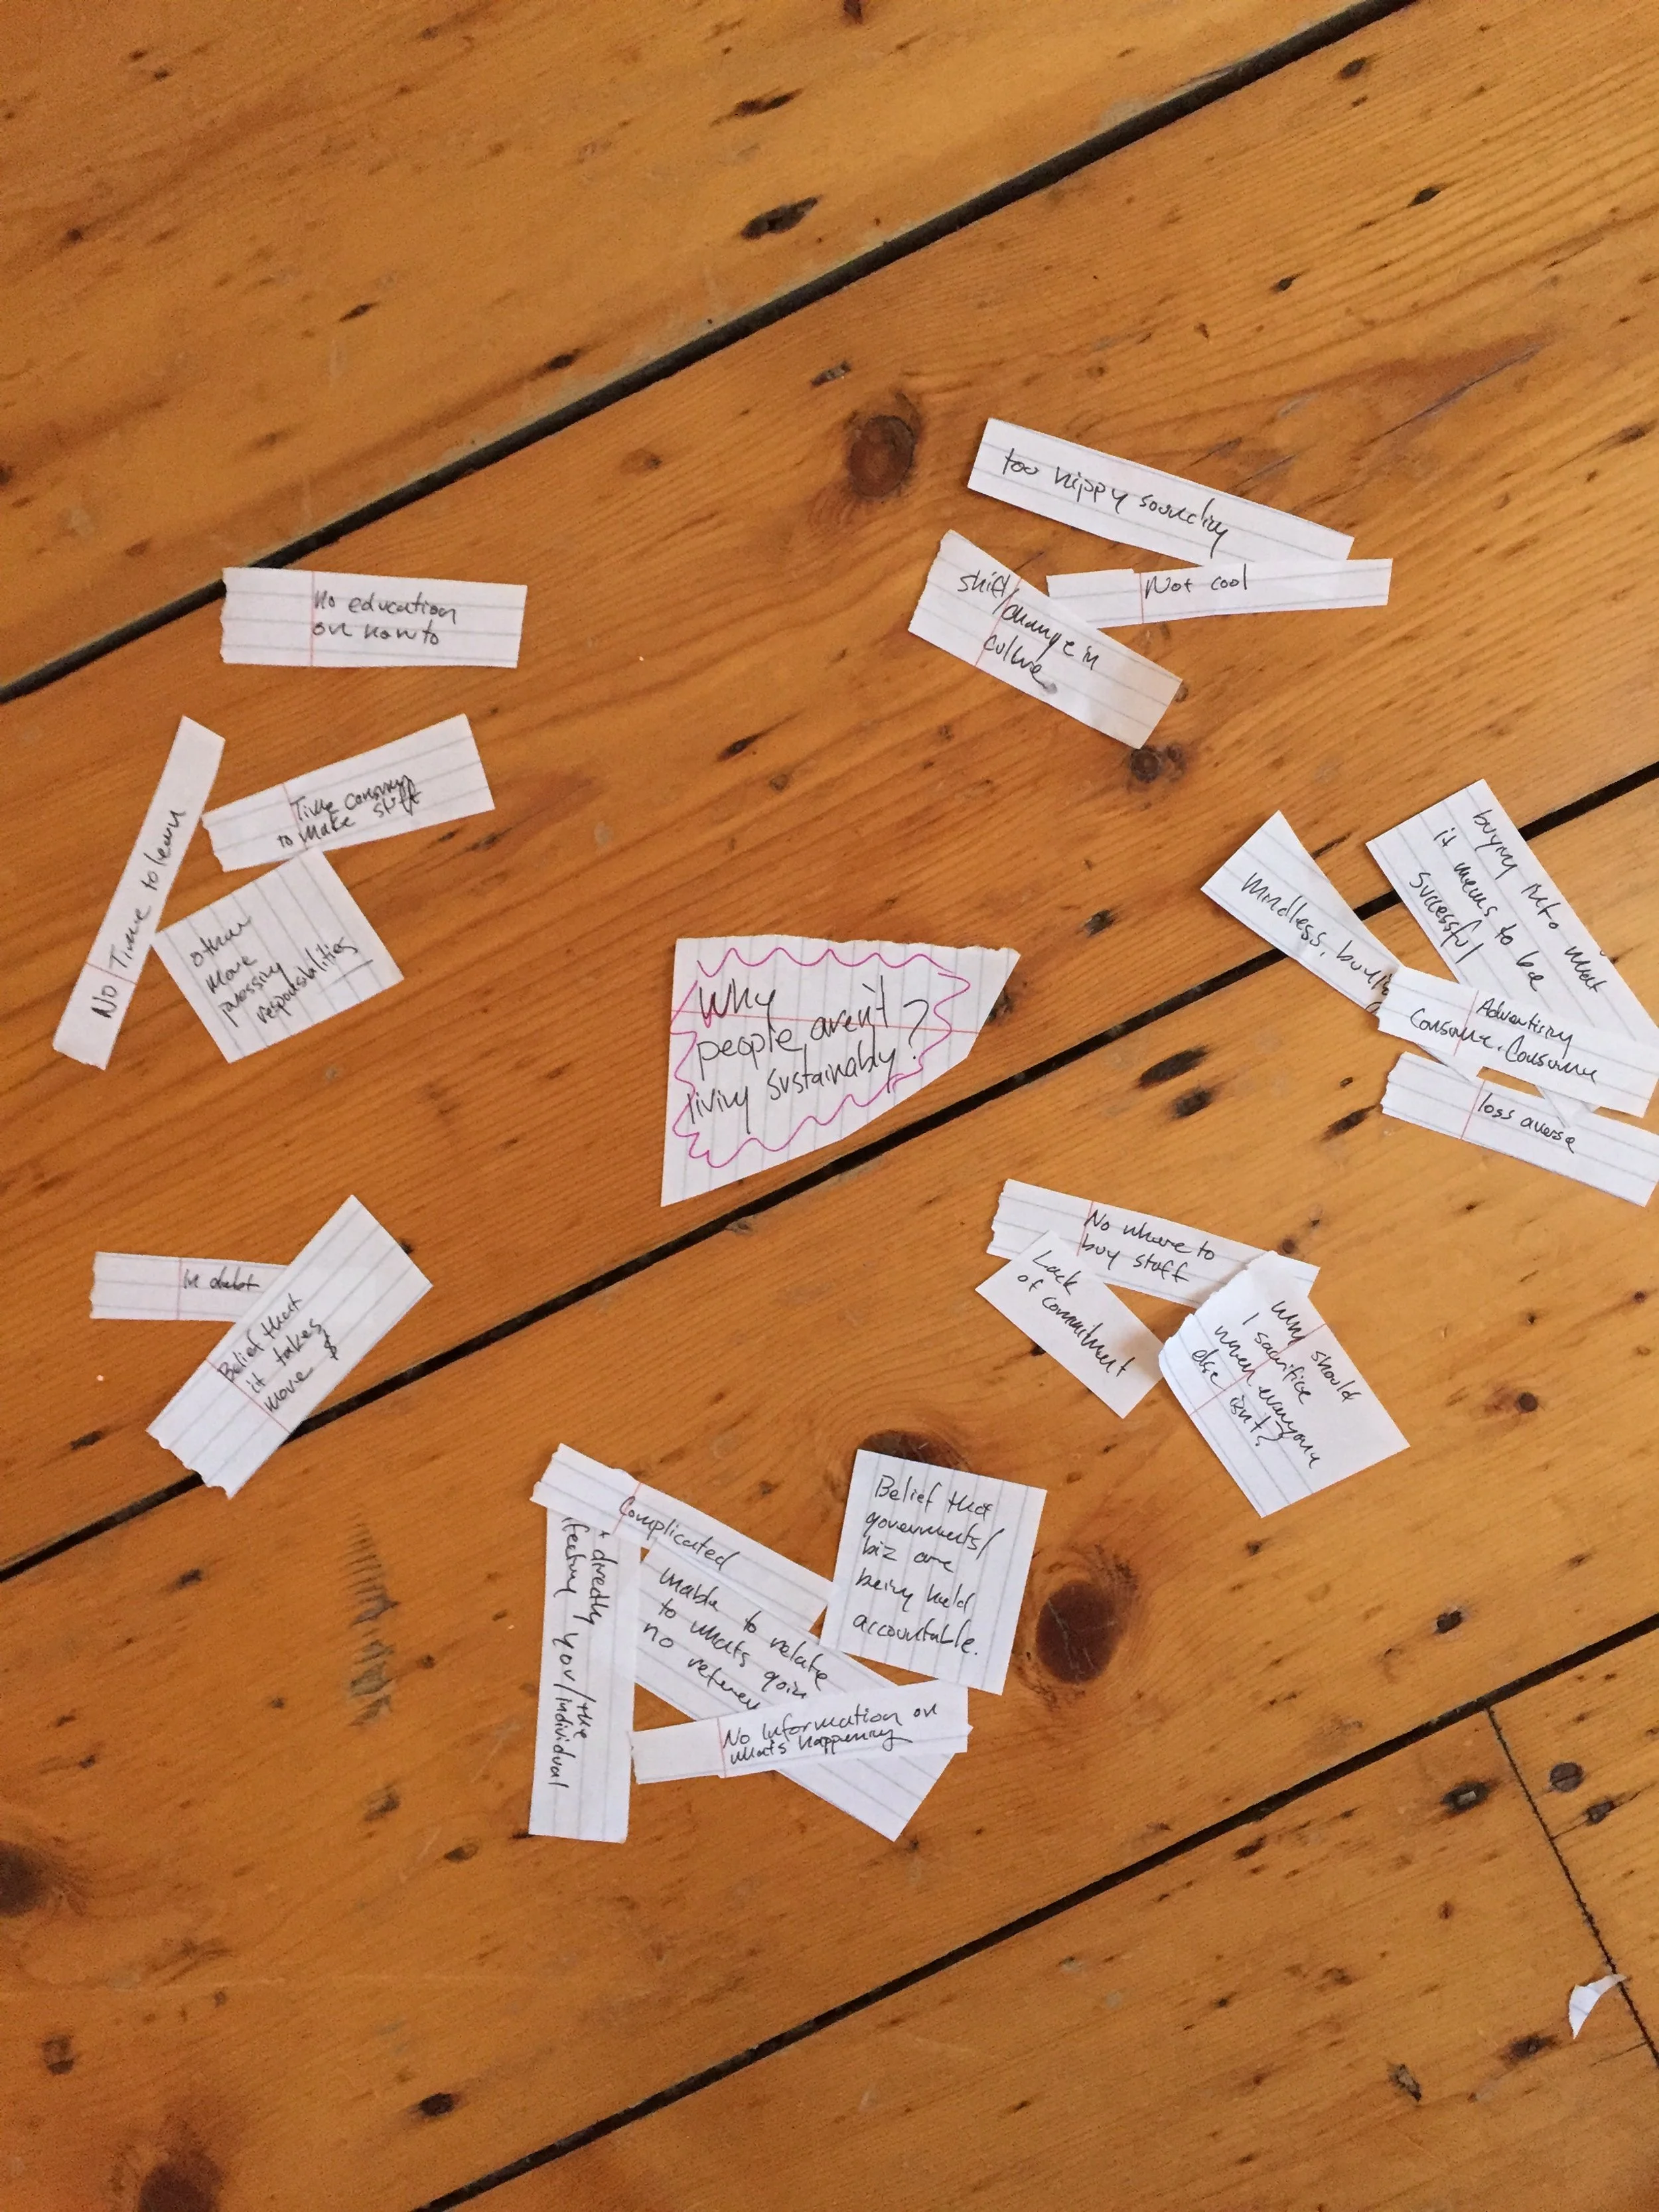 too hippy sounding
Not cool
shift/
change in
culture
No education
on how to
Time consuming
to make stuff
No Time to learn
other
more
pressing
responsibilities
Why
people aren't
living sustainably?
Mindless, buying
buying into what
it means to be
successful
Advertising
Consume, Consume
loss averse
No where to
buy stuff
Lack
of commitment
Why should
I sacrifice
when everyone
else isn't?
in debt
Belief that
it takes
more $
Complicated
unable to relate
to whats goin
no
t directly
fecting you/the
individual
No Information on
whats happening
Belief that
governments/
biz are
being held
accountable.